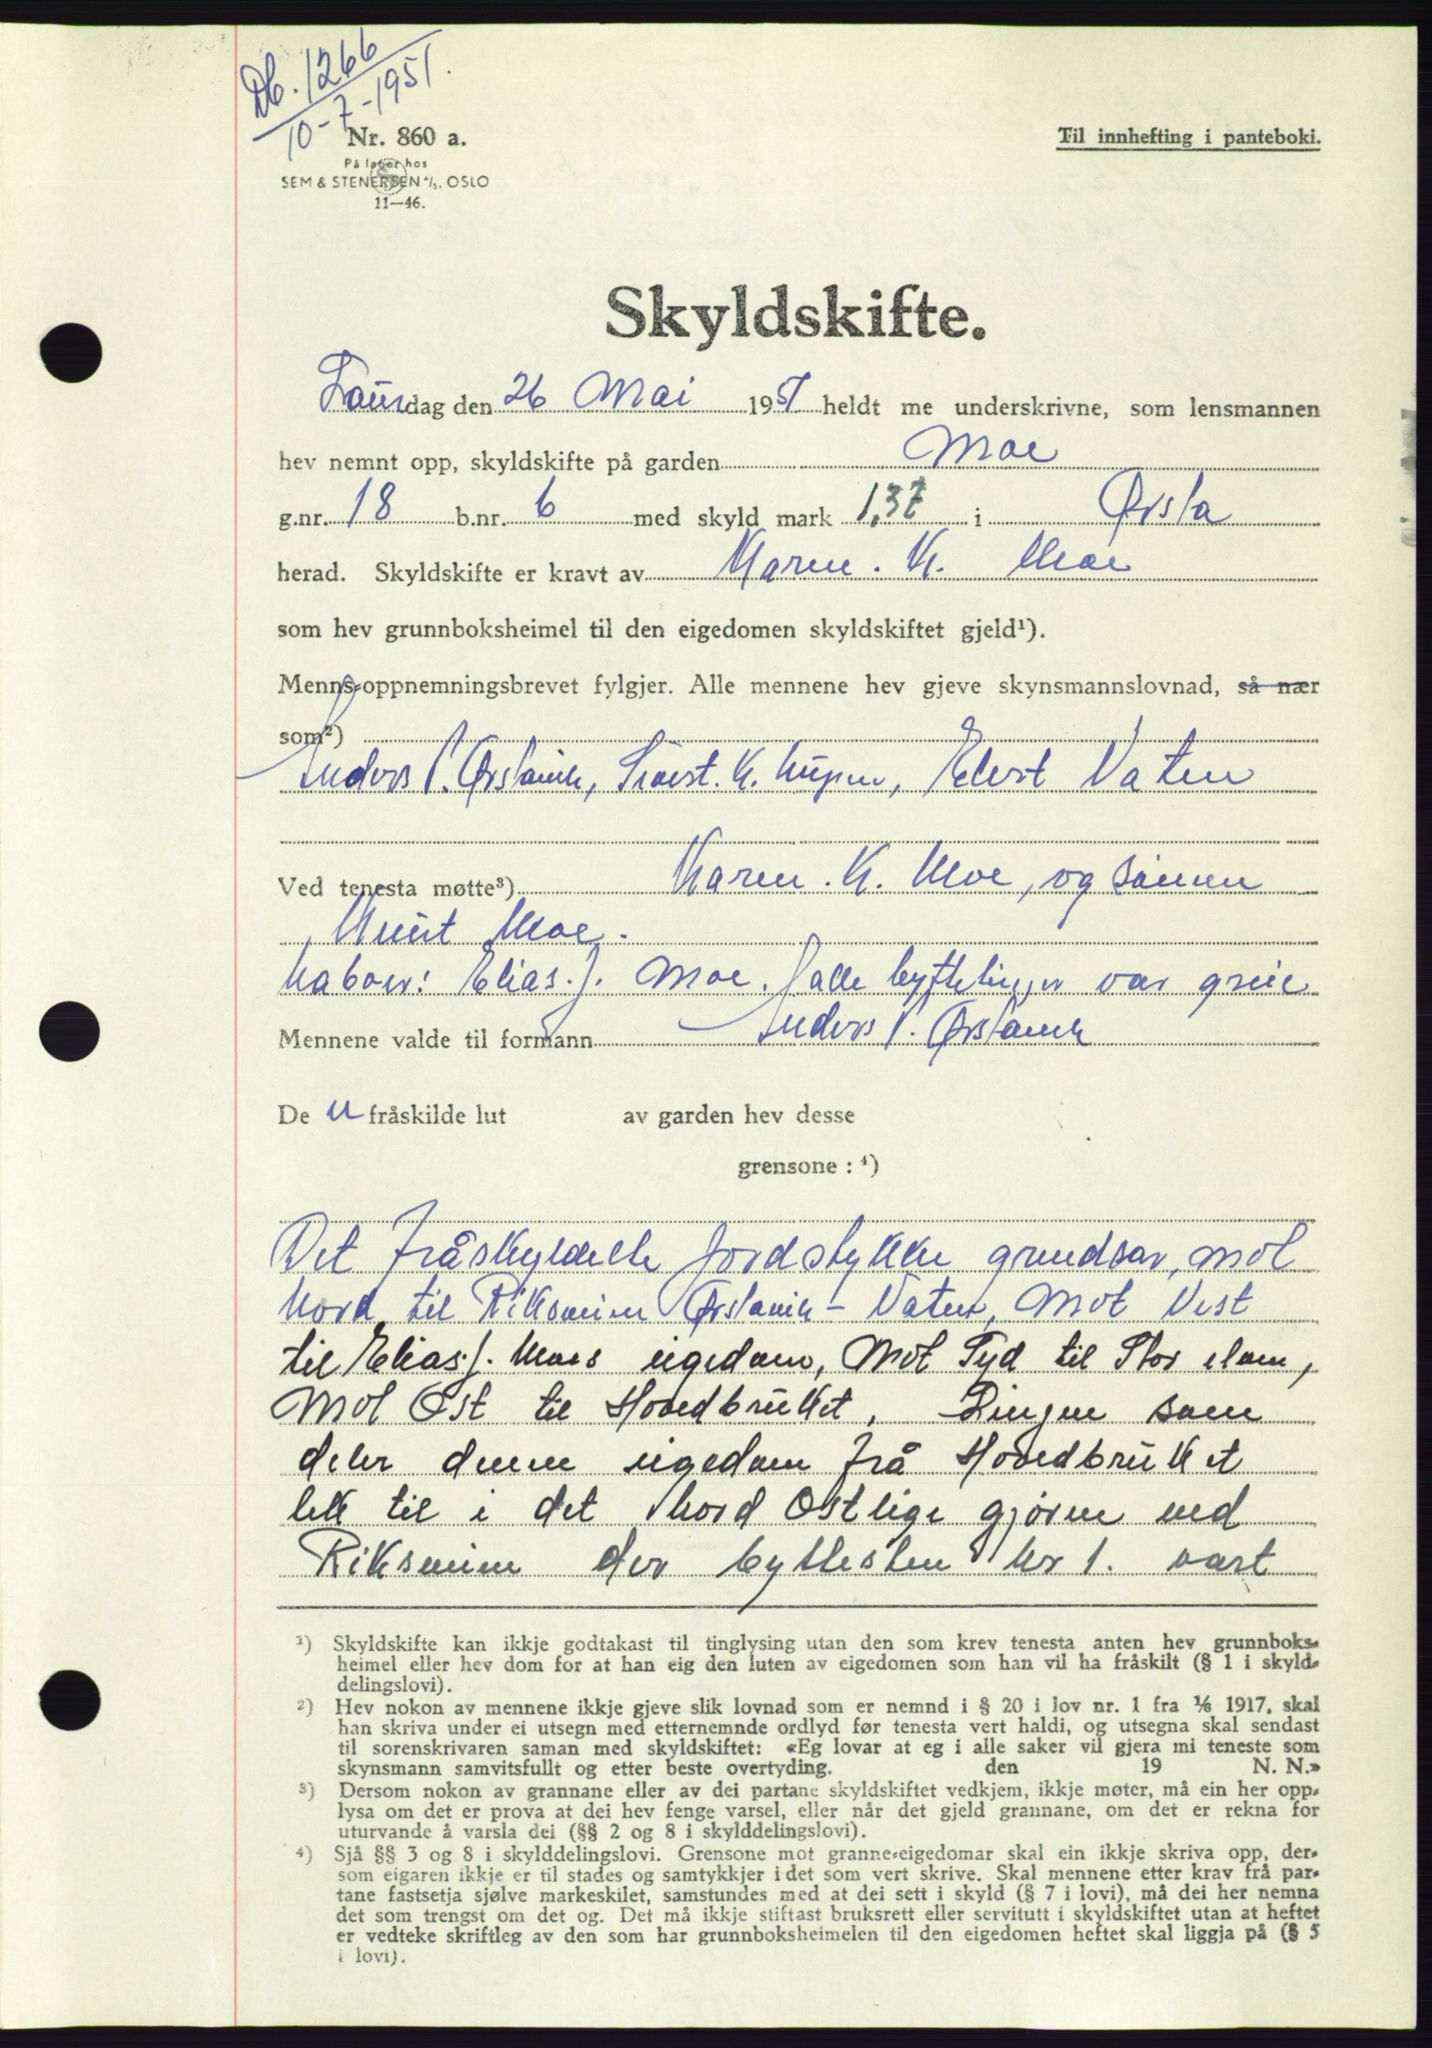 Db. 1266
10-7-1951.
Nr. 860 a.
På lager hos
SEM & STENERSEN A/S, OSLO
11—46.
Til innhefting i panteboki.
Skyldskifte.
Laurdag den 26 Mai 1951 heldt me underskrivne, som lensmannen
hev nemnt opp, skyldskifte på garden Moe
g.nr. 18 b.nr. 6 med skyld mark 1,37 i Ørsta
herad. Skyldskifte er kravt av Karen. K. Moe
som hev grunnboksheimel til den eigedomen skyldskiftet gjeld¹).
Menns-oppnemningsbrevet fylgjer. Alle mennene hev gjeve skynsmannslovnad, så nær
som²)
Anders P. Ørstavik, Sivert. K. Mysen, Elert Vatne
Ved tenesta møtte³) Karen. K. Moe, og sønnen
Knut Moe.
Naboer: Elias. J. Moe. Jalle bytteliggjer var greie
Mennene valde til formann Anders P. Ørstavik
De n fråskilde lut av garden hev desse
grensone : ⁴)
Det fråskyldelte jordstykke grendsar, mot
Nord til Riksveien Ørstavik - Vatne, Mot Vest
til Elias. J. Moes eigedom, Mot Syd til Stor elven,
Mot Øst til Hovedbruket, Lingen som
deler denne eigedom frå Hovedbruket
lek til i det Nord Østlige gjørne ved
Riksveien der byttesten Nr 1. vart
¹) Skyldskifte kan ikkje godtakast til tinglysing utan den som krev tenesta anten hev grunnboks-
heimel eller hev dom for at han eig den luten av eigedomen som han vil ha fråskilt (§ 1 i skyld-
delingslovi).
²) Hev nokon av mennene ikkje gjeve slik lovnad som er nemnd i § 20 i lov nr. 1 fra ⅛ 1917, skal
han skriva under ei utsegn med etternemnde ordlyd før tenesta vert haldi, og utsegna skal sendast
til sorenskrivaren saman med skyldskiftet: «Eg lovar at eg i alle saker vil gjera mi teneste som
skynsmann samvitsfullt og etter beste overtyding. den 19 N. N.»
³) Dersom nokon av grannane eller av dei partane skyldskiftet vedkjem, ikkje møter, må ein her opp-
lysa om det er prova at dei hev fenge varsel, eller når det gjeld grannane, om det er rekna for
uturvande å varsla dei (§§ 2 og 8 i skylddelingslovi).
⁴) Sjå §§ 3 og 8 i skylddelingslovi. Grensone mot granne-eigedomar skal ein ikkje skriva opp, der-
som eigaren ikkje er til stades og samtykkjer i det som vert skrive. Skal mennene etter krav frå par-
tane fastsetja sjølve markeskilet, samstundes med at dei sett i skyld (§ 7 i lovi), må dei her nemna
det som trengst om det og. Det må ikkje stiftast bruksrett eller servitutt i skyldskiftet utan at heftet
er vedteke skriftleg av den som har grunnboksheimelen til den eigedomen heftet skal liggja på (§ 5
i lovi).